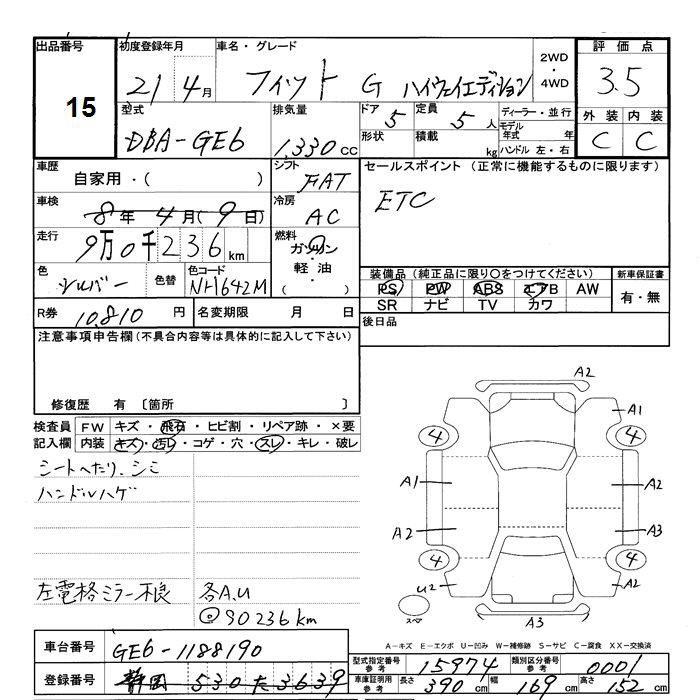 出品番号 初度登録年月 車名・グレード 2WD・4WD 評価点
15 21年4月 フィット G ハイウェイエディション 3.5
型式 排気量 ドア 5 定員 5人 ディーラー・並行 外装 内装
DBA-GE6 1,330cc 形状 積載 kg モデル年式 年 ハンドル 左・右 C C
車歴 自家用・( ) シフト FAT セールスポイント (正常に機能するものに限ります)
車検 8年4月(9日) 冷房 AC ETC
走行 9万0千236km 燃料 ガソリン・軽油・( )
色 シルバー 色替 色コード NH642M 装備品 (純正品に限り○をつけてください) 新車保証書
PS PW ABS エアB AW 有・無
SR ナビ TV カワ
R券 10,810円 名変期限 月 日 後日品
注意事項申告欄 (不具合内容等は具体的に記入して下さい)
修復歴 有 〔箇所 〕
検査員 FW キズ・飛石・ヒビ割・リペア跡・×要
記入欄 内装 キズ・汚レ・コゲ・穴・スレ・キレ・破レ
シートヘたり、シミ
ハンドルハゲ
左電格ミラー不良 各A.U
◎90236km
A2
A1
4 4
A1 A2
A2 A3
4 4
U2 A2
スペア
A3
A-キズ E-エクボ U-凹み W-補修跡 S-サビ C-腐食 XX-交換済
車台番号 GE6-1188190
型式指定番号 参考 15974 類別区分番号 参考 0001
登録番号 静岡 530 た 3639
車庫証明用 参考 長さ 390cm 幅 169cm 高さ 152cm